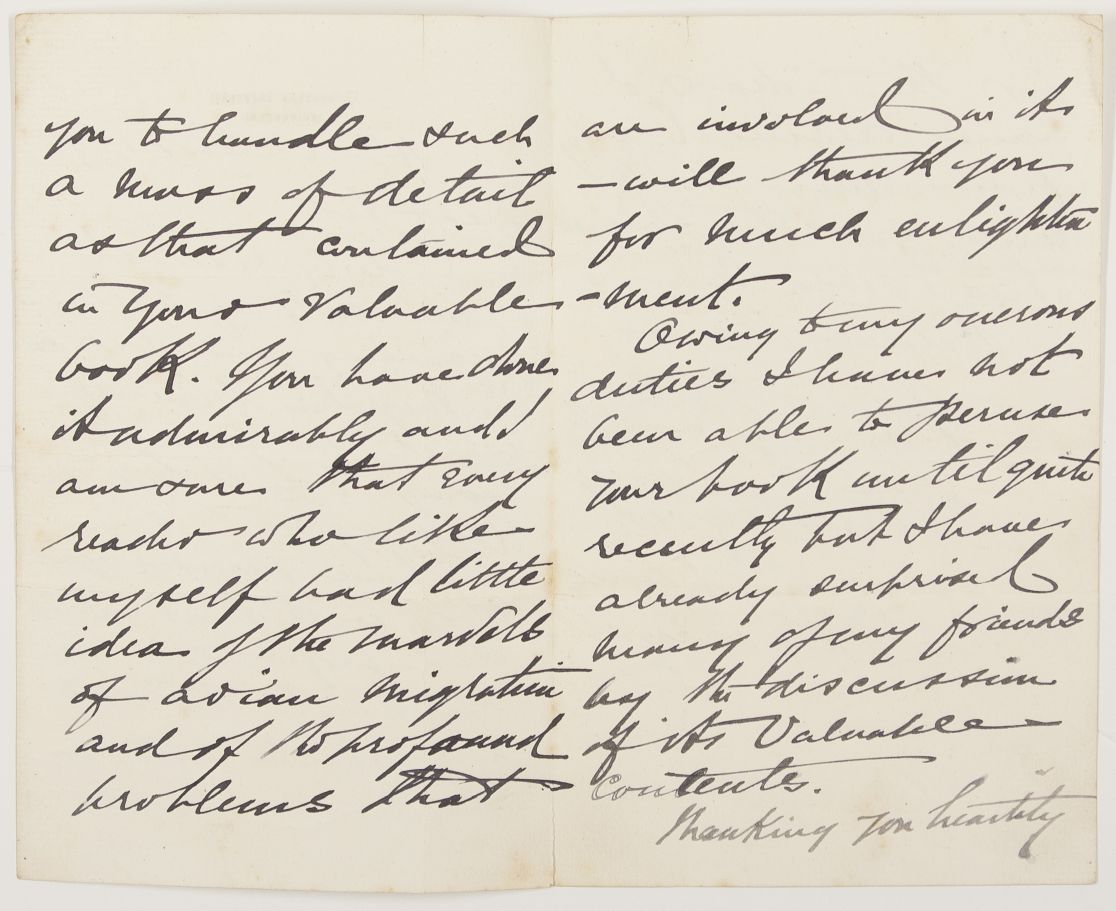 you to handle such
a mass of detail
as that contained
in your valuable
book. You have done
it admirably and I
am sure that every
reader who like
myself had little
idea of the marvels
of avian migration
and of the profound
problems that
are involved in its
- will thank you
for much enlighten
- ment.
Owing to my onerous
duties I have not
been able to peruse
your book until quite
recently but I have
already surprised
many of my friends
by the discussion
of its valuable
contents.
Thanking you heartily